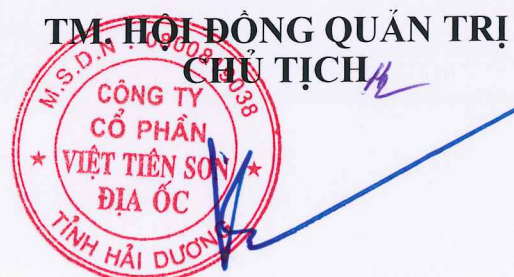 TM. HỘI ĐỒNG QUẢN TRỊ
CHỦ TỊCH
M.S.D.N
CÔNG TY
CỔ PHẦN
VIỆT TIÊN SƠN
ĐỊA ỐC
TỈNH HẢI DƯƠNG